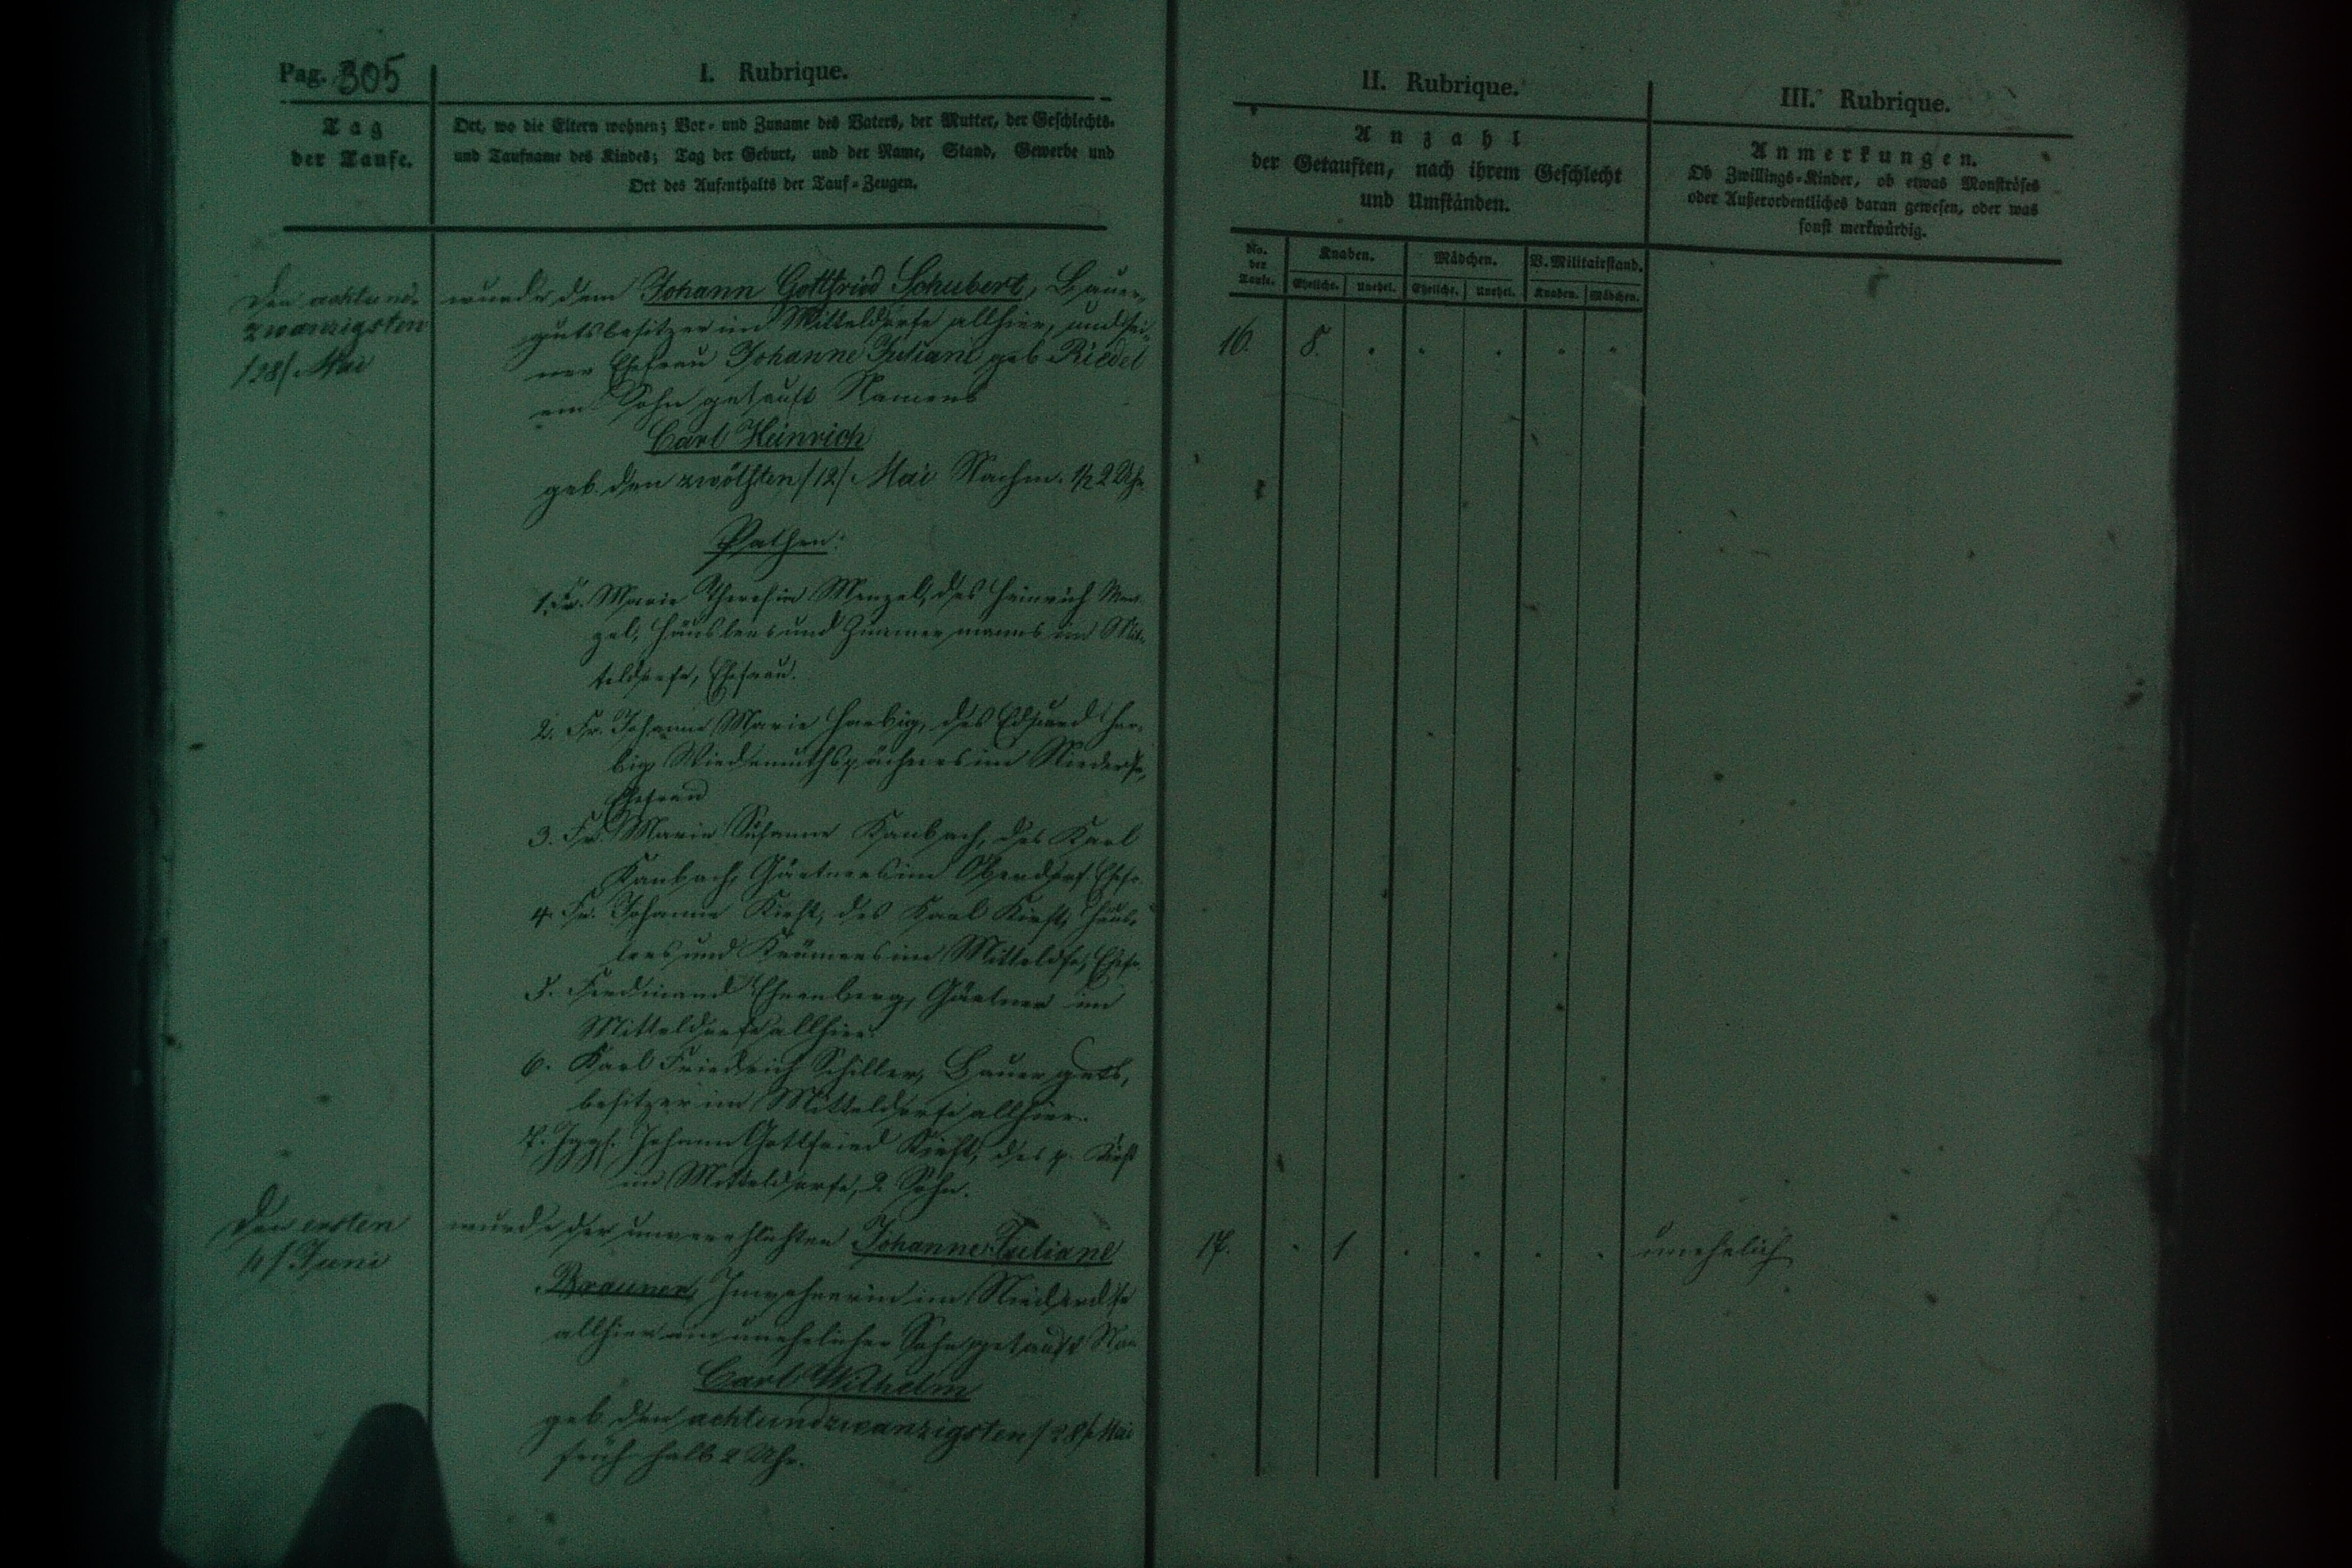 Pag. 305
I. Rubrique.
Tag
der Taufe.
Ort, wo die Eltern wohnen; Vor- und Zuname des Vaters, der Mutter, der Geschlechts-
und Taufname des Kindes; Tag der Geburt, und der Name, Stand, Gewerbe und
Ort des Aufenthalts der Tauf-Zeugen.
II. Rubrique.
Anzahl
der Getauften, nach ihrem Geschlecht
und Umständen.
III. Rubrique.
Anmerkungen.
Ob Zwillings-Kinder, ob etwas Monströses
oder Außerordentliches daran gewesen, oder was
sonst merkwürdig.
No. der Taufe.
Knaben.
Mädchen.
V. Militairstand.
Eheliche. Unehel. Eheliche. Unehel. Knaben. Mädchen.
Den achtund-
zwanzigsten
/28/ Mai
wurde dem Johann Gottfried Schubert, Bauer-
gutsbesitzer im Mitteldorfe allhier, und sei-
ner Ehefrau Johanne Juliane geb. Riedel
ein Sohn getauft Namens
Carl Heinrich
geb. den zwölften /12/ Mai Nachm. 1/2 2 Uhr
16. 8. . . . . .
Pathen:
1. Fr. Marie Theresia Menzel, des Heinrich Men-
zel, Häuslers und Zimmermanns im Mit-
teldorfe, Ehefrau.
2. Fr. Johanne Marie Harbig, des Eduard Har-
big Wiedemuthspächters im
Ehefrau
3. Fr. Marie Susanne Kanbach, des Karl
Kanbach, Gärtners im Oberdorf. Ehefr.
4. Fr. Johanne des Karl Häus-
lers und Krämers im Mitteldfe, Ehefr.
5. Ferdinand Ehrenberg, Gärtner im
Mitteldorfe allhier.
6. Karl Friedrich Schiller, Bauerguts-
besitzer im Mitteldorfe allhier.
7. Jggs. Johann Gottfried des p.
im Mitteldorfe, 2. Sohn.
Den ersten
/1/ Juni
wurde der unverehlichten Johanne Juliane
Brauner, Inwohnerin im Niederdfe
allhier ein unehelicher Sohn getauft Na-
Carl Wilhelm
geb. den achtundzwanzigsten /28/ Mai
früh halb 2 Uhr.
17. . 1 . . . . unehelich